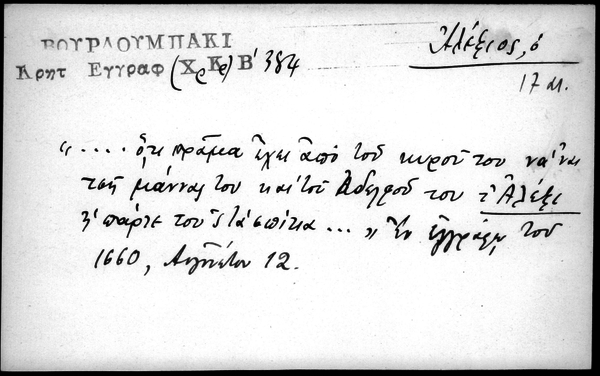 ΒΟΥΡΔΟΥΜΠΑΚΙ
Κρητ Εγγραφ (Χρ Κρ) Β' 384
Ἀλέξιος, ὁ
17 αι.
".... ὅτι πρᾶμα ἔχει ἀπὸ τοῦ κυροῦ του νά 'ναι
τσῆ μάννας του καὶ τοῦ ἀδελφοῦ του τ' Ἀλέξι
πάρεξ του τὰ σπίτια ... " Ἐν ἐγγράφῳ τοῦ
1660, Αὐγούστου 12.